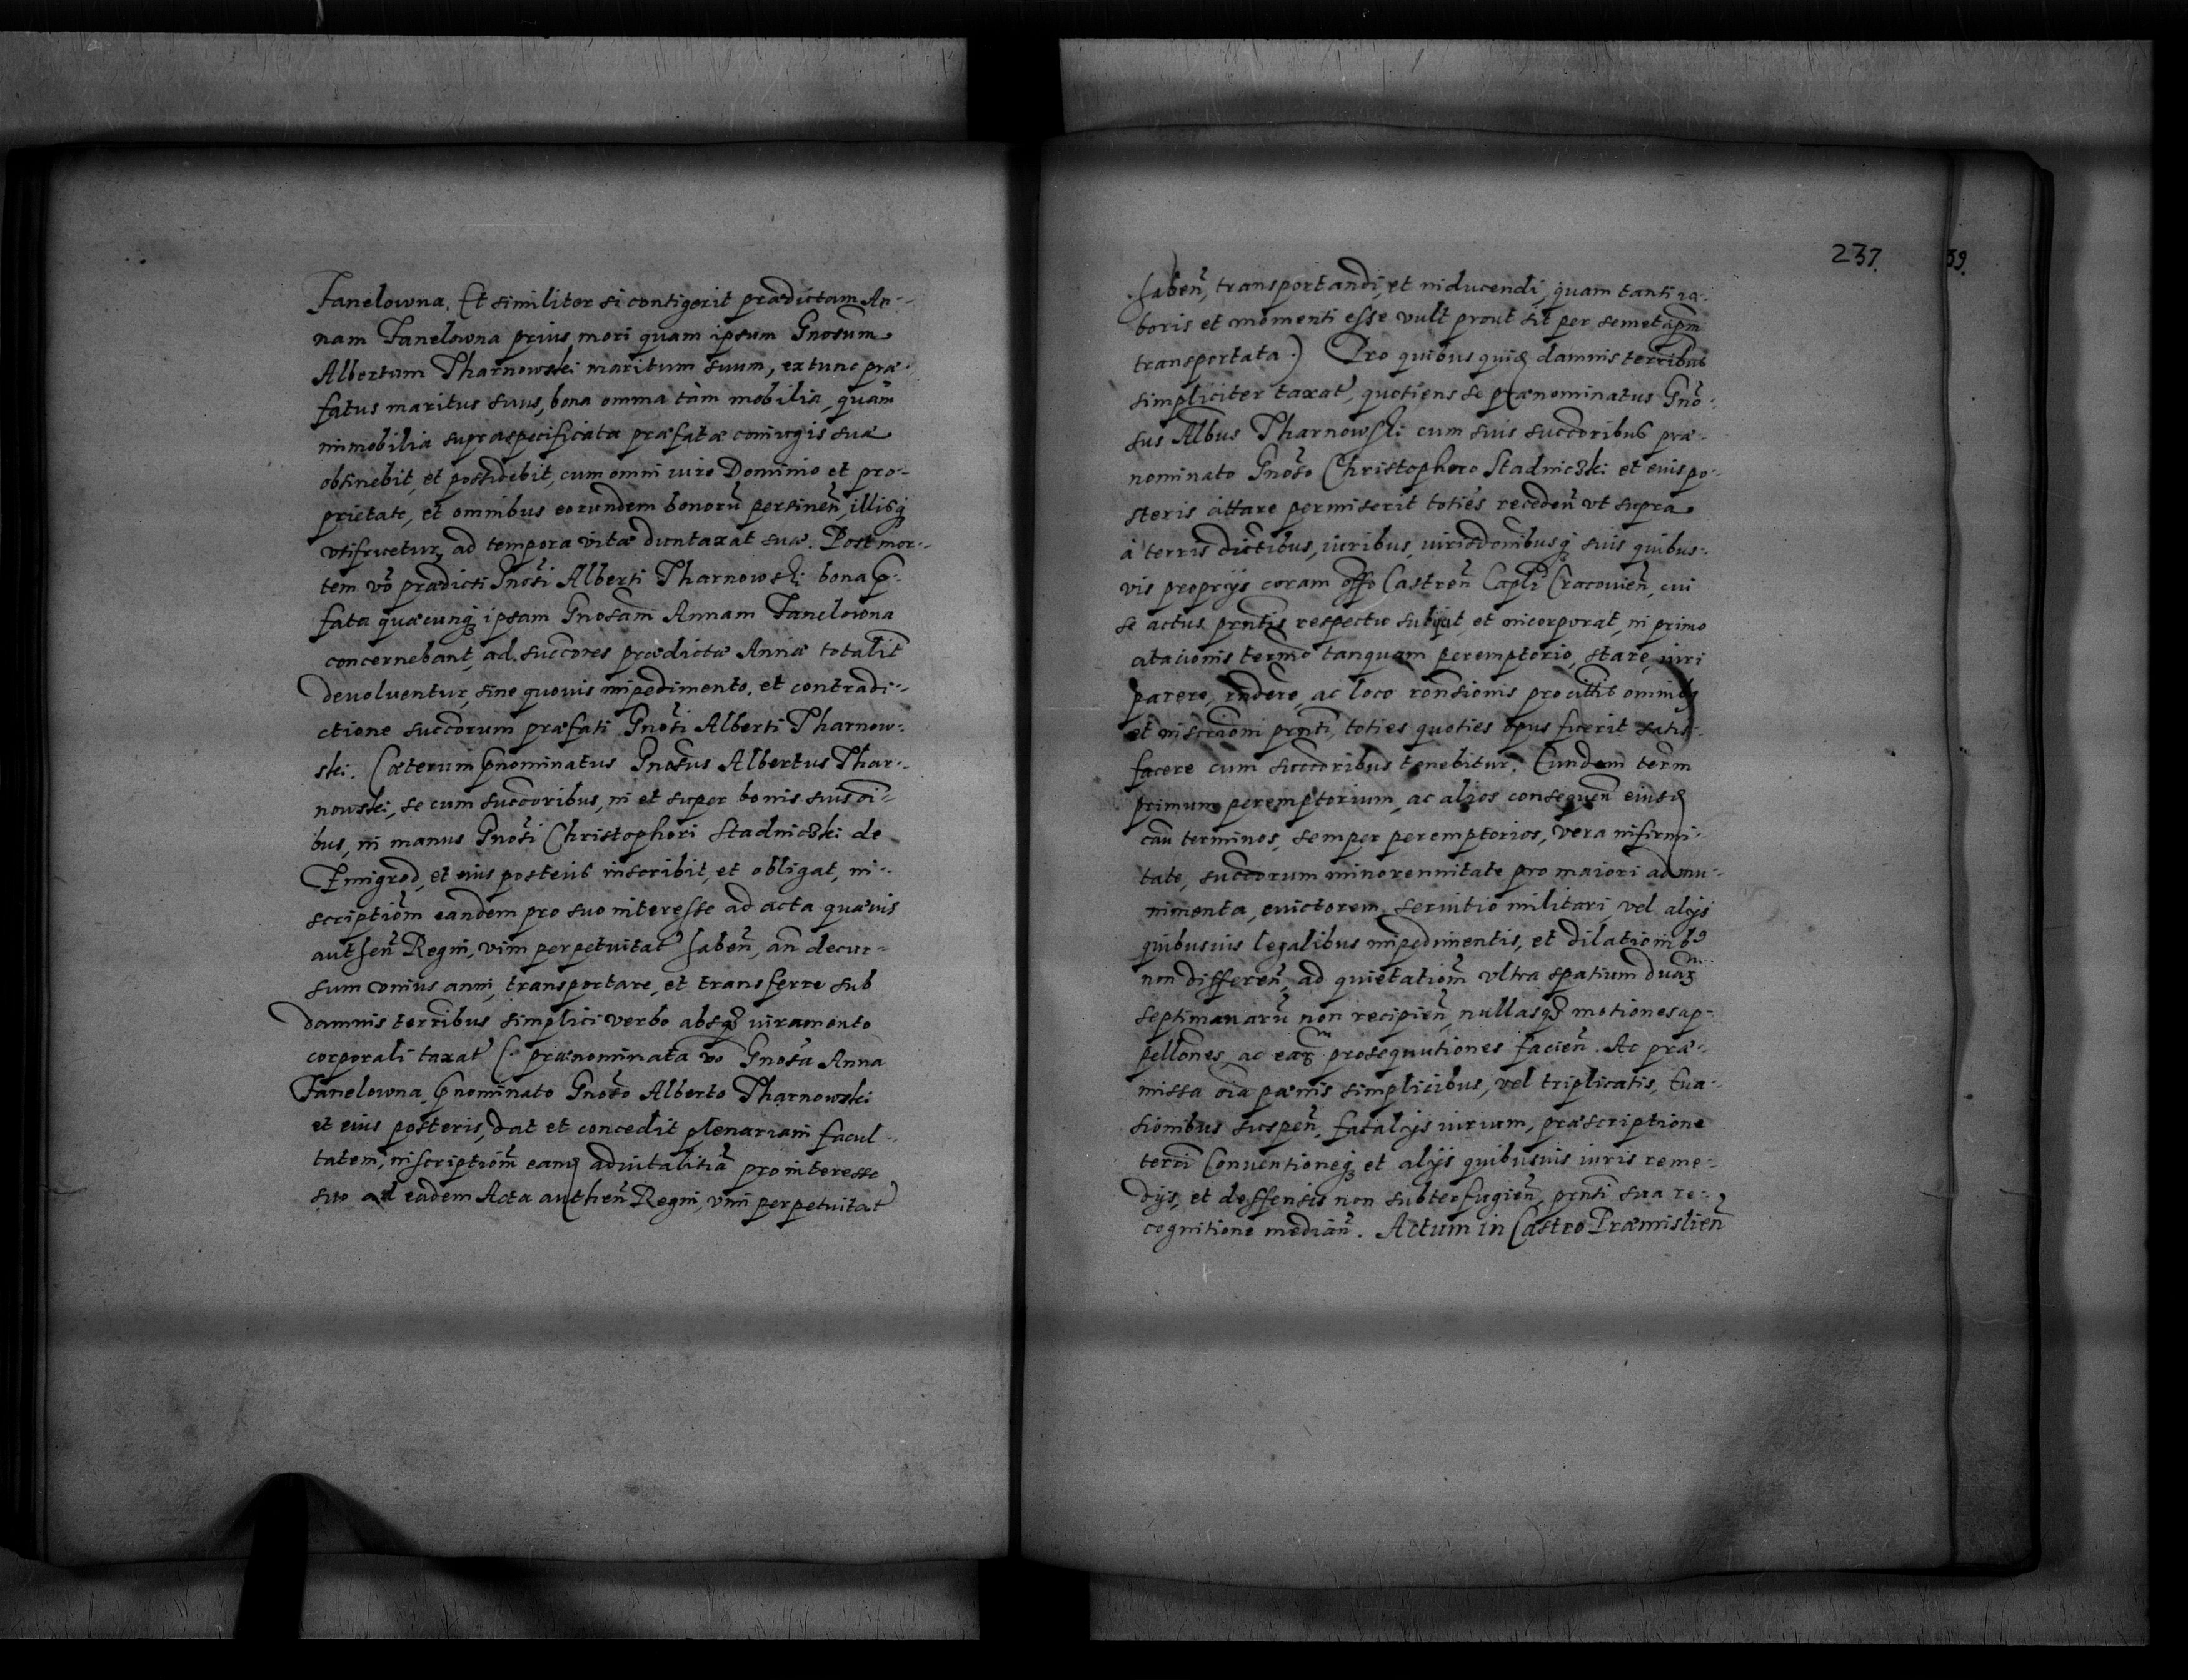 Fanelowna. Et similiter si contigerit prædictam An-
nam Fanelowna prius mori quam ipsum Gnosum
Albertum Tharnowski maritum suum, extunc præ-
fatus maritus suus, bona omnia tàm mobilia, quàm
immobilia supraspecificata præfatæ coniugis suæ
obtinebit, et possidebit, cum omni iure Dominio et pro-
prietate, et omnibus eorundem bonorũ pertineñ, illisq́
vtifruetur, ad tempora vitæ duntaxat suæ. Post mor-
tem vo prædicti Gnosi Alberti Tharnowski bona p-
fata quæcunq́ ipsam Gnosam Annam Fanelowna
concernebant, ad succores prædictæ Annæ totalit
deuoluentur, sine quouis impedimento, et contradi-
ctione succorum præfati Gnosi Alberti Tharnow-
ski. Cæterum pnominatus Gnosus Albertus Thar-
nowski, se cum succoribus, in et super bonis suis oi-
bus, in manus Gnosi Christophori Stadniczki de
Zmigrod, et eius posteris inscribit, et obligat, in-
scriptiom eandem pro suo interesse ad acta quæuis
autheñ Regni, vim perpetuitat habeñ, añ decur-
sum vnius anni, transportare, et transferre sub
damnis terribus simplici verbo absq́ iuramento
corporali taxat (prænominata vo Gnosa Anna
Fanelowna, pnominato Gnoso Alberto Tharnowski
et eius posteris, dat et concedit plenariam facul-
tatem, inscriptiom eand aduitalitiã pro interesse
suo ad eadem Acta autheñ Regni, vim perpetuitat
237. 39.
habeñ, transportandi, et inducendi, quam tanti ra-
boris et momenti esse vult prout sit per semetipm
transportata.) Pro quibus quid damnis terribus
simpliciter taxat, quotiens se prænominatus Gno-
sus Albus Tharnowski cum suis succoribus præ-
nominato Gnoso Christophoro Stadniczki et eius po-
steris citare permiserit toties recedeñ vt supra
à terris districtibus, iuribus, iurisdonibusq́ suis quibus-
vis proprijs coram offo Castreñ Capli Cracouieñ, cui
se actus prntis respectu subijt, et incorporat, in primo
citationis termo tanquam peremptorio, stare, iuri
parere, rndere, ac loco ronsionis pro omnibus
et inscrioni prnti, toties quoties opus fuerit satis-
facere cum succoribus tenebitur. Eundem term
primum peremptorium, ac alios consequeñ eiusd
cau terminos, semper peremptorios, vera infirmi-
tate, succorum minorennitate pro maiori ad mu-
nimenta, euictorem, seruitio militari, vel alijs
quibusuis legalibus impedimentis, et dilationib9
non differeñ, ad quietatiom vltra spatium duarum
septimanarũ non recipieñ, nullasq́ motiones ap-
pellones, ac earum prosequutiones facieñ. Ac præ-
missa oia pænis simplicibus, vel triplicatis, Eua-
sionibus suspeñ, fatalijs iurium, præscriptione
terri Conuentioneq́ et alijs quibusuis iuris reme-
dijs, et deffensis non subterfugieñ, prnti sua re-
cognitione mediañ. Actum in Castro Præmislieñ